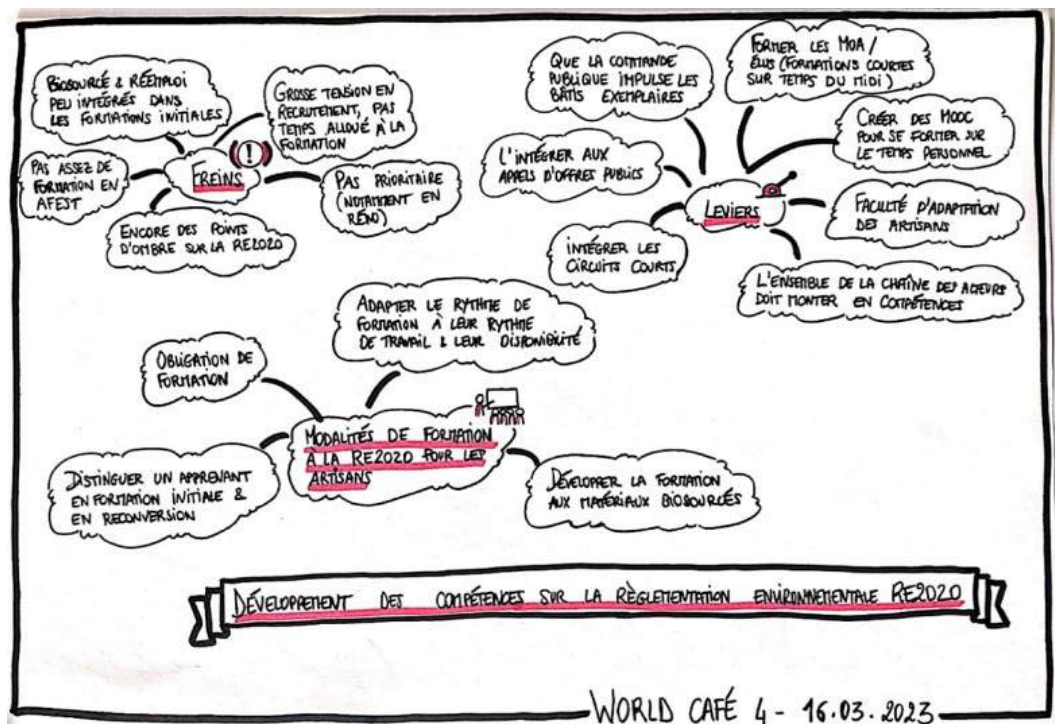 BIOSOURCÉ & RÉEMPLOI
PEU INTÉGRÉS DANS
LES FORMATIONS INITIALES
GROSSE TENSION EN
RECRUTEMENT, PAS
TEMPS ALLOUÉ À LA
FORMATION
PAS ASSEZ DE
FORMATION EN
AFEST
FREINS
(!)
PAS PRIORITAIRE
(NOTAMMENT EN
RÉNO)
ENCORE DES POINTS
D'OMBRE SUR LA RE2020
QUE LA COMMANDE
PUBLIQUE IMPULSE LES
BÂTIS EXEMPLAIRES
FORMER LES MOA /
ÉLUS (FORMATIONS COURTES
SUR TEMPS DU MIDI)
CRÉER DES MOOC
POUR SE FORMER SUR
LE TEMPS PERSONNEL
L'INTÉGRER AUX
APPELS D'OFFRES PUBLICS
LEVIERS
FACULTÉ D'ADAPTATION
DES ARTISANS
INTÉGRER LES
CIRCUITS COURTS
L'ENSEMBLE DE LA CHAÎNE DES ACTEURS
DOIT MONTER EN COMPÉTENCES
ADAPTER LE RYTHME DE
FORMATION À LEUR RYTHME
DE TRAVAIL & LEUR DISPONIBILITÉ
OBLIGATION DE
FORMATION
MODALITÉS DE FORMATION
À LA RE2020 POUR LES
ARTISANS
DISTINGUER UN APPRENANT
EN FORMATION INITIALE &
EN RECONVERSION
DÉVELOPPER LA FORMATION
AUX MATÉRIAUX BIOSOURCÉS
DÉVELOPPEMENT DES COMPÉTENCES SUR LA RÈGLEMENTATION ENVIRONNEMENTALE RE2020
WORLD CAFÉ 4 - 16.03.2023